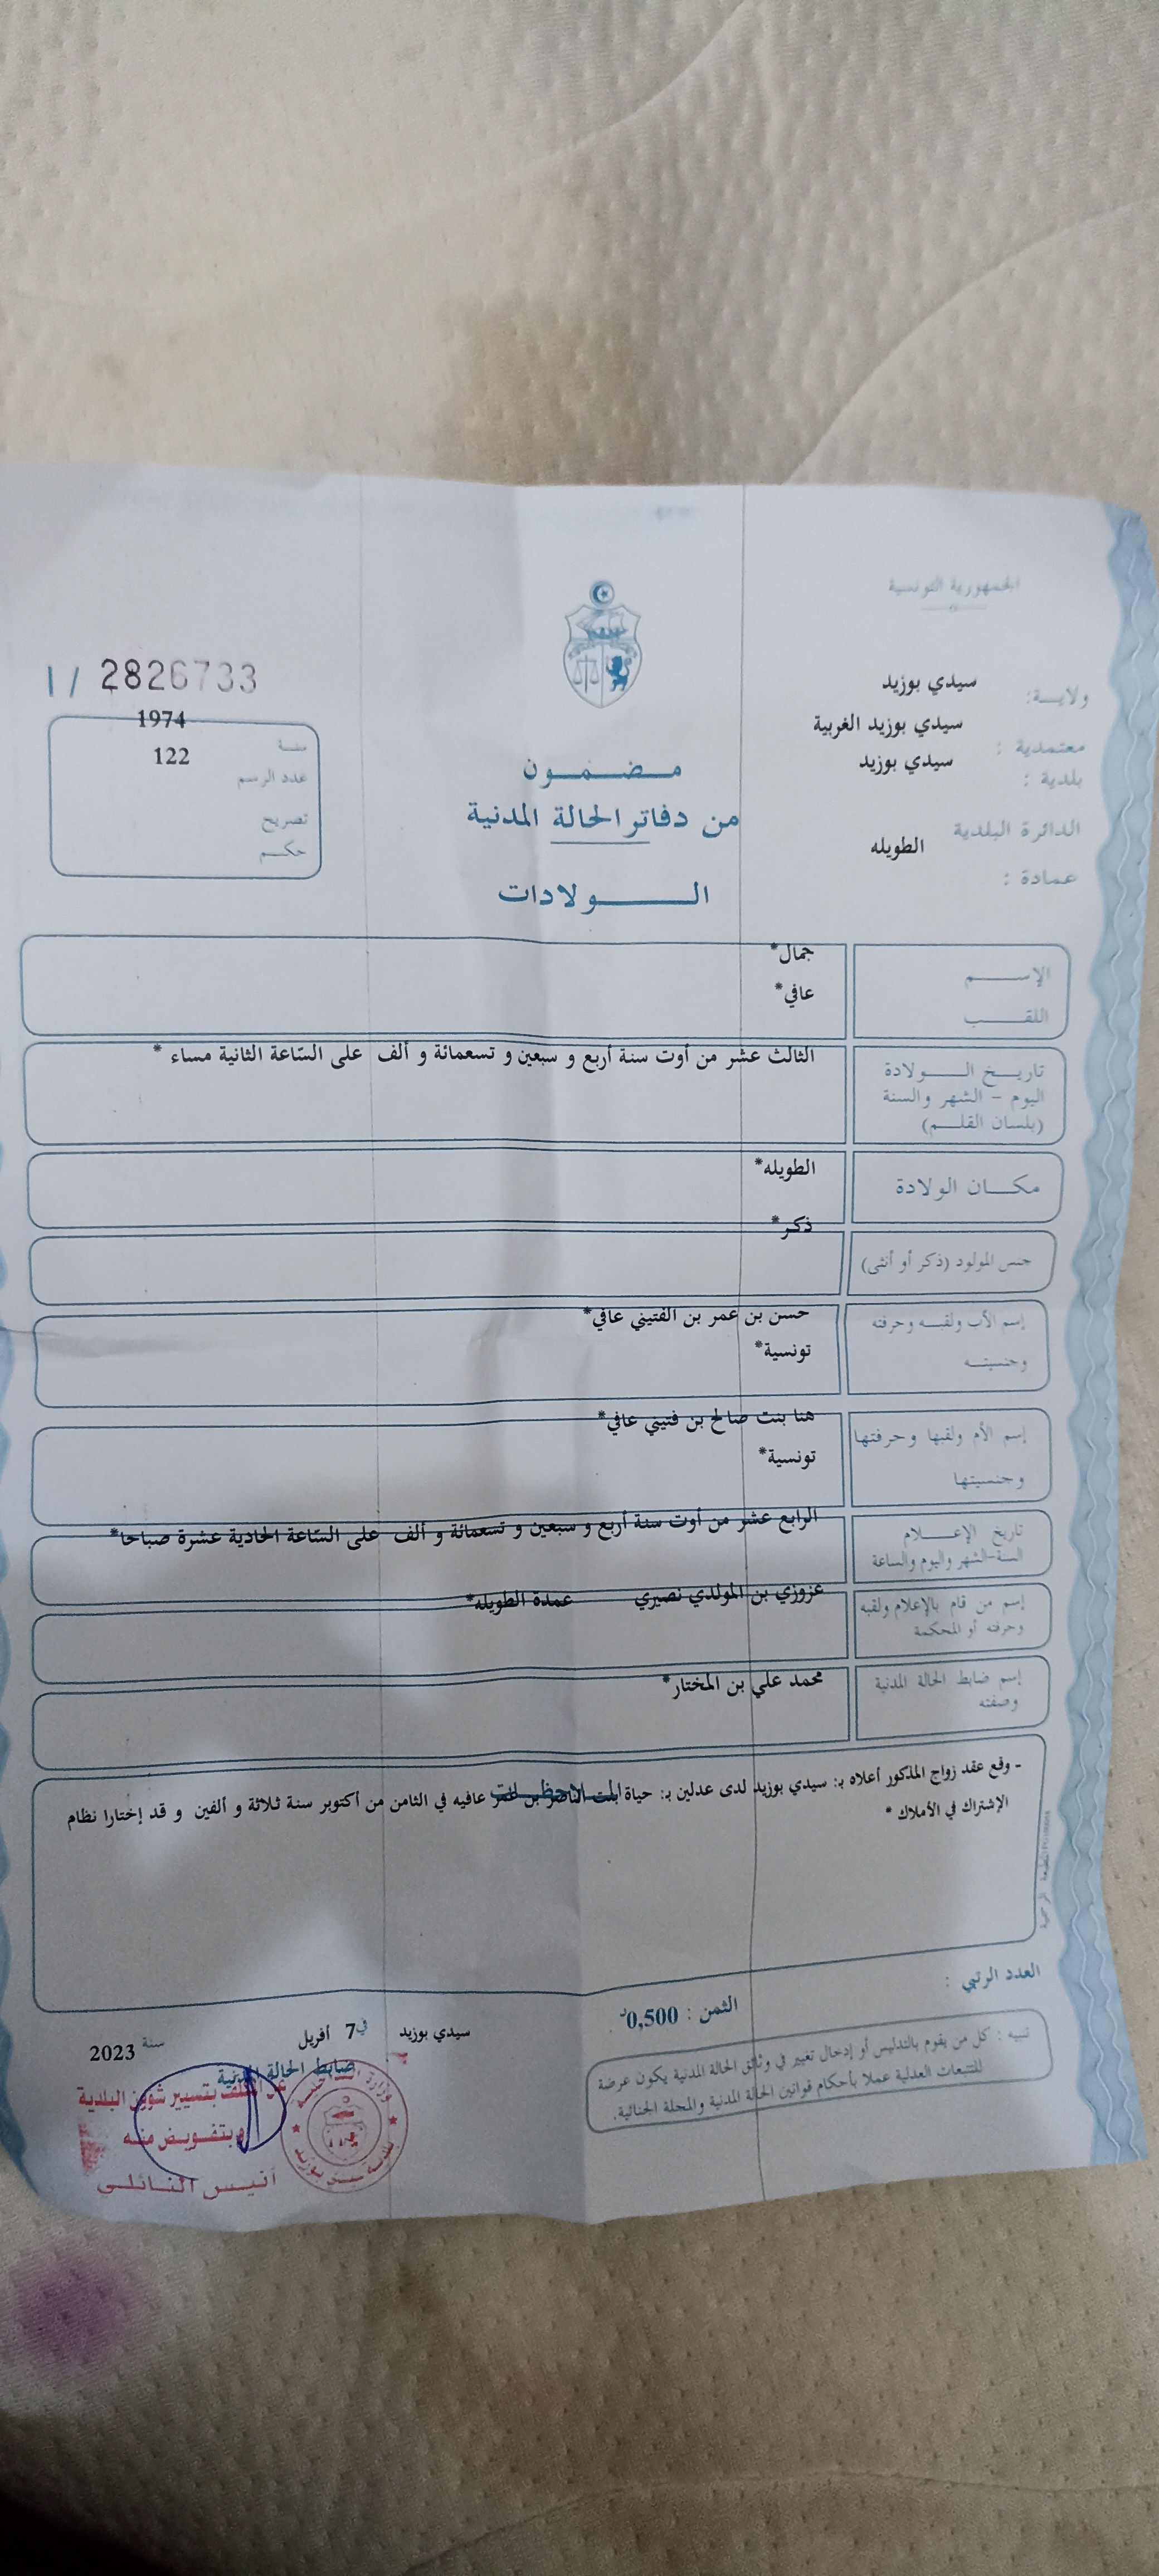 الجمهورية التونسية
ولايـــة: سيدي بوزيد
معتمدية : سيدي بوزيد الغربية
بلدية : سيدي بوزيد
الدائرة البلدية
عمادة : الطويله
I / 2826733
سنـة 1974
عدد الرسم 122
تصريح
حكـــم
مـــضـــمـــون
من دفاتر الحالة المدنية
الـــــولادات
الإســـــم جمال*
اللقـــــب عافي*
تاريـــخ الـــــولادة
اليوم - الشهر والسنة
(بلسان القلـــم)
الثالث عشر من أوت سنة أربع و سبعين و تسعمائة و ألف على السّاعة الثانية مساء *
مكـــان الولادة الطويله*
جنس المولود (ذكر أو أنثى) ذكر*
إسم الأب ولقبـــه وحرفته حسن بن عمر بن الفتيني عافي*
وجنسيتـــه تونسية*
إسم الأم ولقبها وحرفتها هنا بنت صالح بن فتيني عافي*
وجنسيتها تونسية*
تاريخ الإعـــــلام
السنة-الشهر واليوم والساعة
الرابع عشر من أوت سنة أربع و سبعين و تسعمائة و ألف على السّاعة الحادية عشرة صباحا*
إسم من قام بالإعلام ولقبه
وحرفته أو المحكمة
عزوزي بن المولدي نصيري عمدة الطويله*
إسم ضابط الحالة المدنية
وصفته
محمد علي بن المختار*
- وقع عقد زواج المذكور أعلاه بـ: سيدي بوزيد لدى عدلين بـ: حياة بنت الناصر بن عمر عافيه في الثامن من أكتوبر سنة ثلاثة و ألفين و قد إختارا نظام
الإشتراك في الأملاك *
العدد الرتبي :
الثمن : 0,500د
سيدي بوزيد في 7 أفريل سنة 2023
ضابط الحالة المدنية
تنبيه : كل من يقوم بالتدليس أو إدخال تغيير في وثائق الحالة المدنية يكون عرضة
للتتبعات العدلية عملا بأحكام قوانين الحالة المدنية والمجلة الجنائية.
المكلف بتسيير شؤون البلدية
وبتفويض منه
أنيس النائلي
بلدية سيدي بوزيد